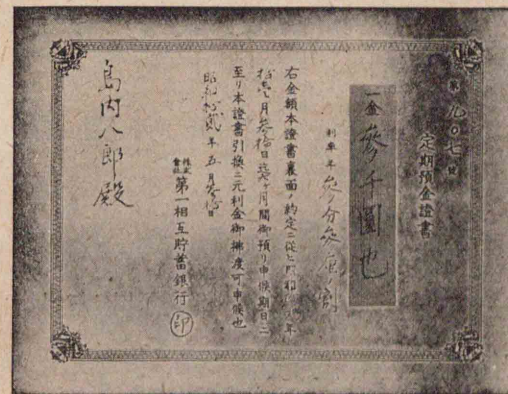 第九〇七號
定期預金證書
一金參千圓也
利率年參分參厘ノ割
右金額本證書裏面ノ約定ニ從ヒ昭和 年
拾壹月參拾日迄六ヶ月間御預リ申候期日ニ
至リ本證書引換ニ元利金御拂渡可申候也
昭和拾貳年五月參拾日
株式會社第一相互貯蓄銀行 印
島内八郎殿